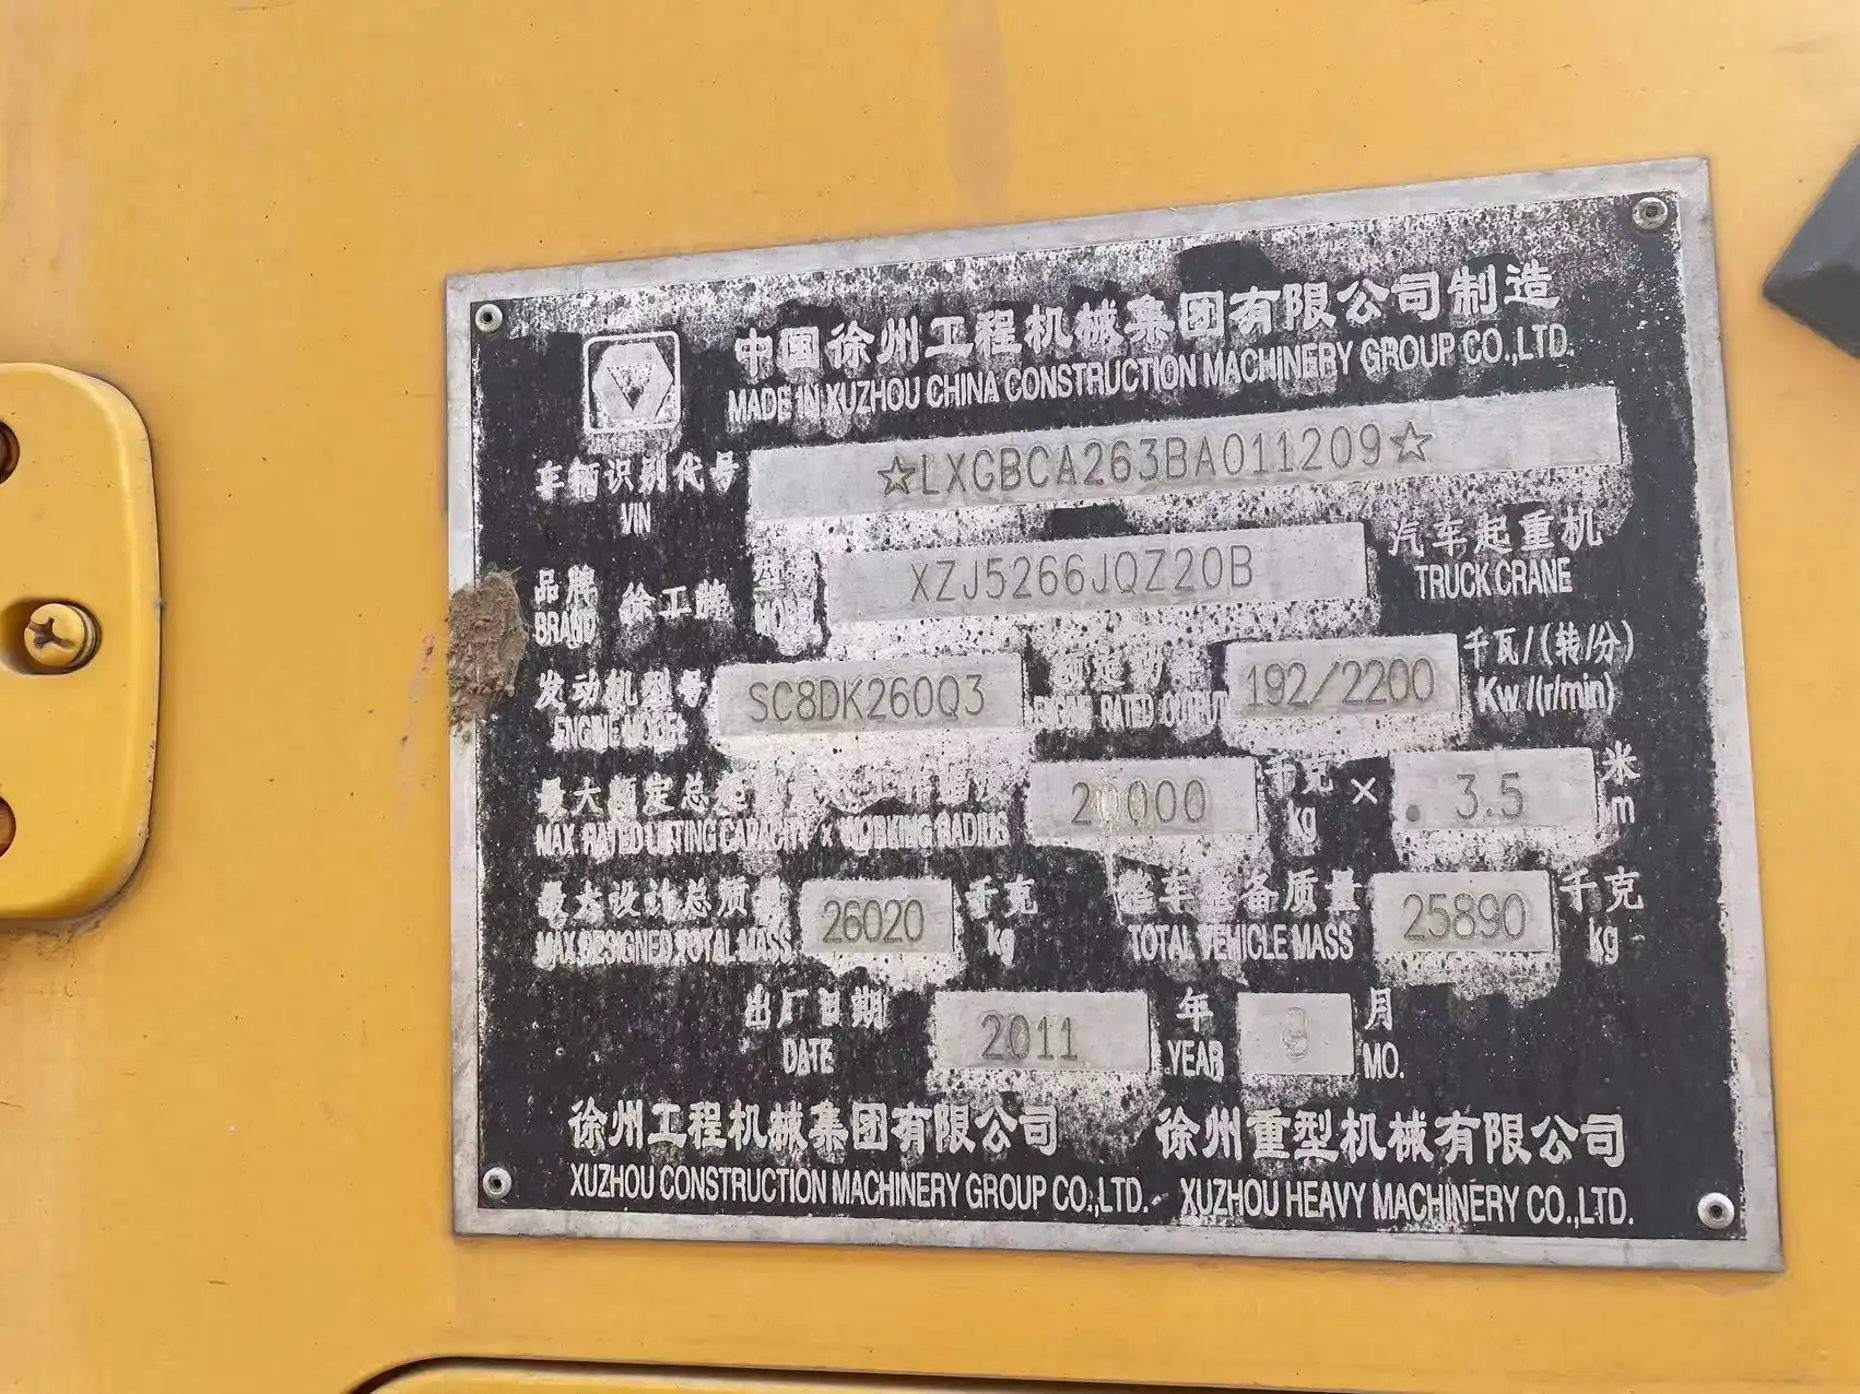 中国徐州工程机械集团有限公司制造
MADE IN XUZHOU CHINA CONSTRUCTION MACHINERY GROUP CO.,LTD.
车辆识别代号 ☆LXGBCA263BA011209☆
VIN
品牌 徐工牌 型号 XZJ5266JQZ20B 汽车起重机
BRAND MODEL TRUCK CRANE
发动机型号 SC8DK260Q3 额定功率 192/2200 千瓦/(转/分)
ENGINE MODEL ENGINE RATED OUTPUT Kw/(r/min)
最大额定总起重量×工作幅度 20000 千克 × 3.5 米
MAX. RATED LIFTING CAPACITY × WORKING RADIUS kg m
最大设计总质量 26020 千克 整车整备质量 25890 千克
MAX.DESIGNED TOTAL MASS kg TOTAL VEHICLE MASS kg
出厂日期 2011 年 月
DATE YEAR MO.
徐州工程机械集团有限公司 徐州重型机械有限公司
XUZHOU CONSTRUCTION MACHINERY GROUP CO.,LTD. XUZHOU HEAVY MACHINERY CO.,LTD.